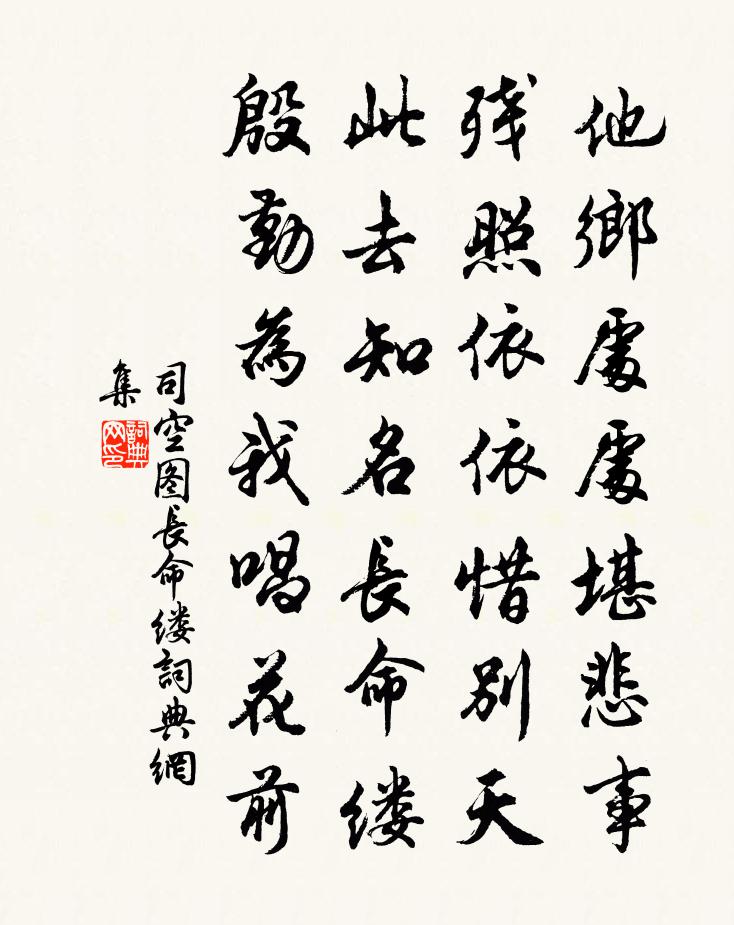 他鄉處處堪悲事
残照依依惜別天
此去知名長命缕
殷勤為我唱花前
司空图長命缕詞典網
集
詞典
网印